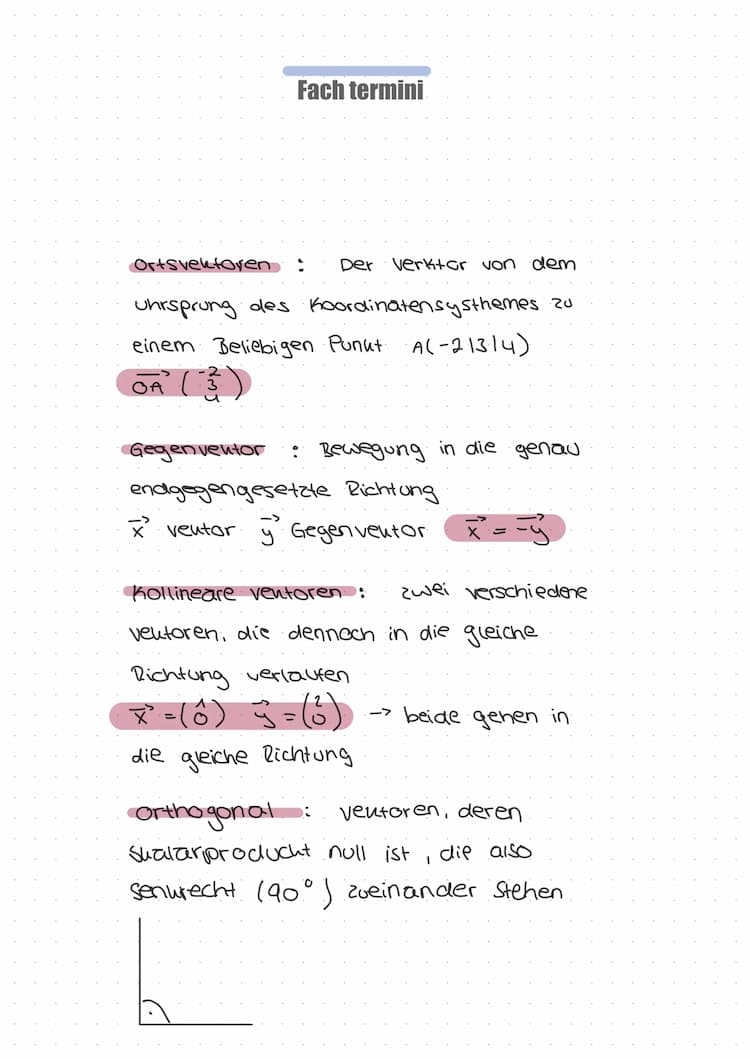 Fach termini
Ortsvektoren : Der Verktor von dem
Uhrsprung des Koordinatensysthemes zu
einem Beliebigen Punkt A(-2|3|4)
→OA (-2 3 4)
Gegenvektor : Bewegung in die genau
endgegengesetzte Richtung
→x vektor →y Gegenvektor →x = →-y
Kollineare vektoren : zwei verschiedene
vektoren, die dennoch in die gleiche
Richtung verlaufen
→x = (1 0) →y = (2 0) → beide gehen in
die gleiche Richtung
Orthogonal : vektoren, deren
Skalarproducht null ist, die also
senkrecht (90°) zueinander stehen